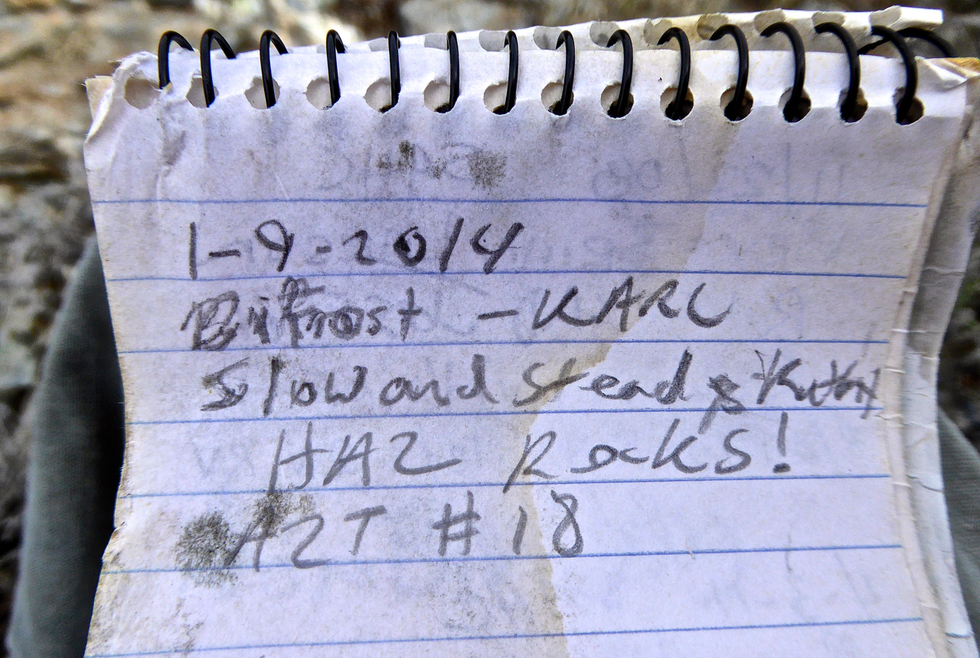 1-9-2014
Bifrost - KARL
Slow and Steady
HAZ Rocks!
AZT #18